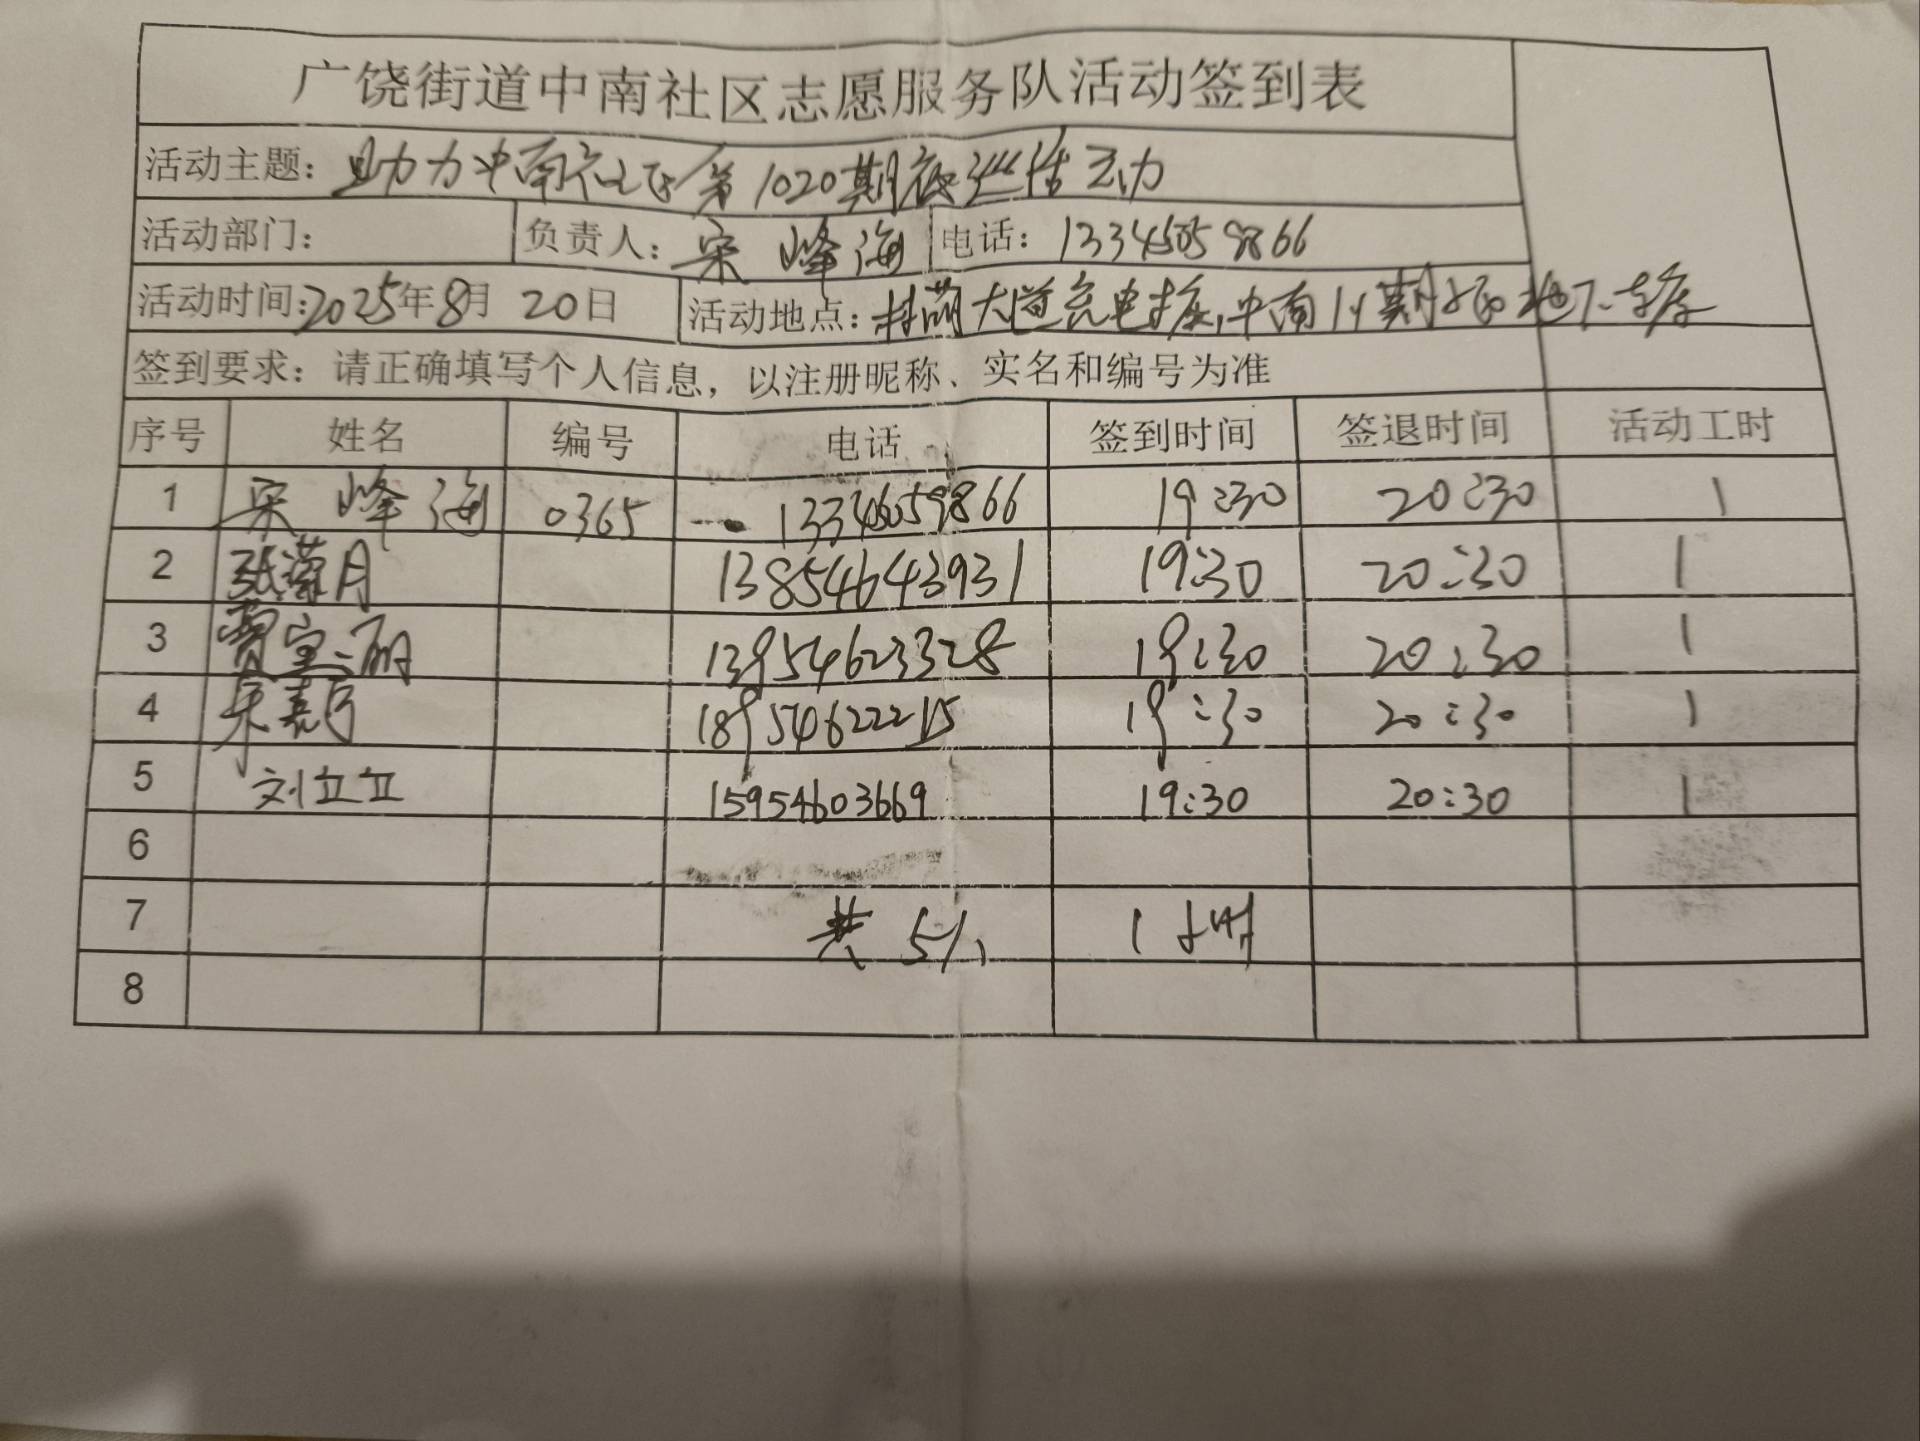 广饶街道中南社区志愿服务队活动签到表
活动主题：助力中南社区第1020期夜巡活动
活动部门： 负责人：宋峰海 电话：13345059866
活动时间：2025年8月20日 活动地点：大道充电车库，中南 期 地下车库
签到要求：请正确填写个人信息，以注册昵称、实名和编号为准
序号 姓名 编号 电话 签到时间 签退时间 活动工时
1 宋峰海 0365 19:30 20:30 1
2 张 月 13854643931 19:30 20:30 1
3 贾宝丽 13954623328 19:30 20:30 1
4 18954622215 19:30 20:30 1
5 刘立立 15954603669 19:30 20:30 1
6
7 共5人 1小时
8